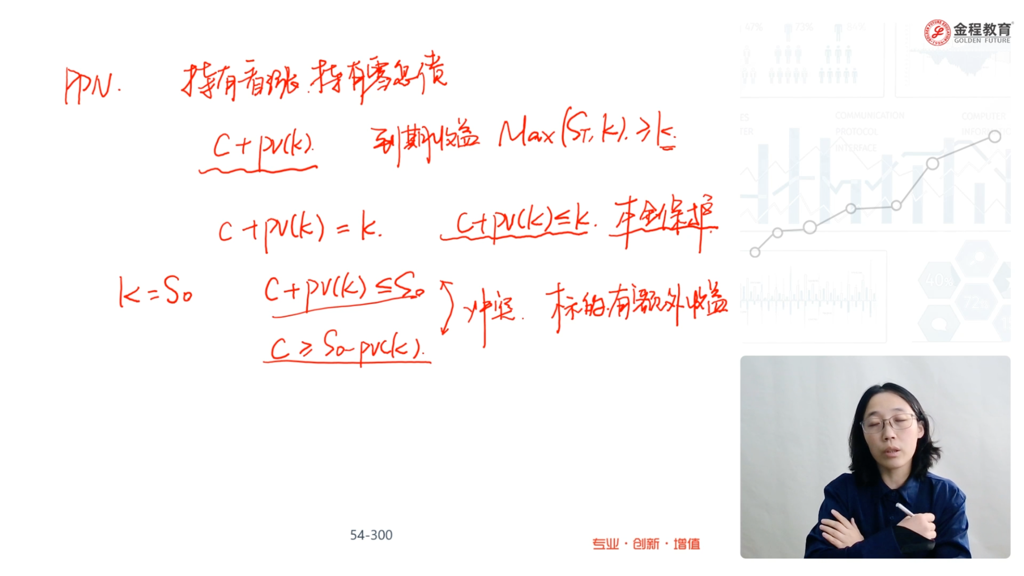 金程教育
GOLDEN FUTURE
PPN. 持有看涨.持有零息债
C+PV(K). 到期收益 Max(ST,K).≥K.
C+PV(K)=K. C+PV(K)≤K. 本金保护.
K=S0 C+PV(K)≤S0
冲突. 标的有额外收益
C≥S0-PV(K).
COMMUNICATION
PROTOCOL
INTERFACE
54-300
专业·创新·增值